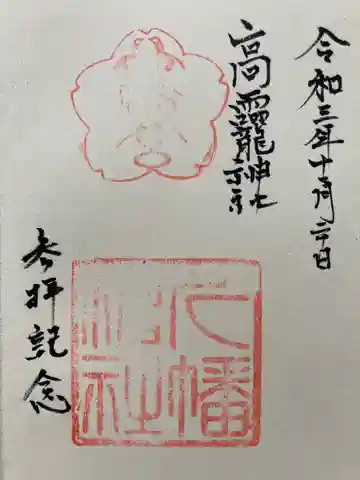 令和三年十月
高靇神社
八幡
神社
参拝記念